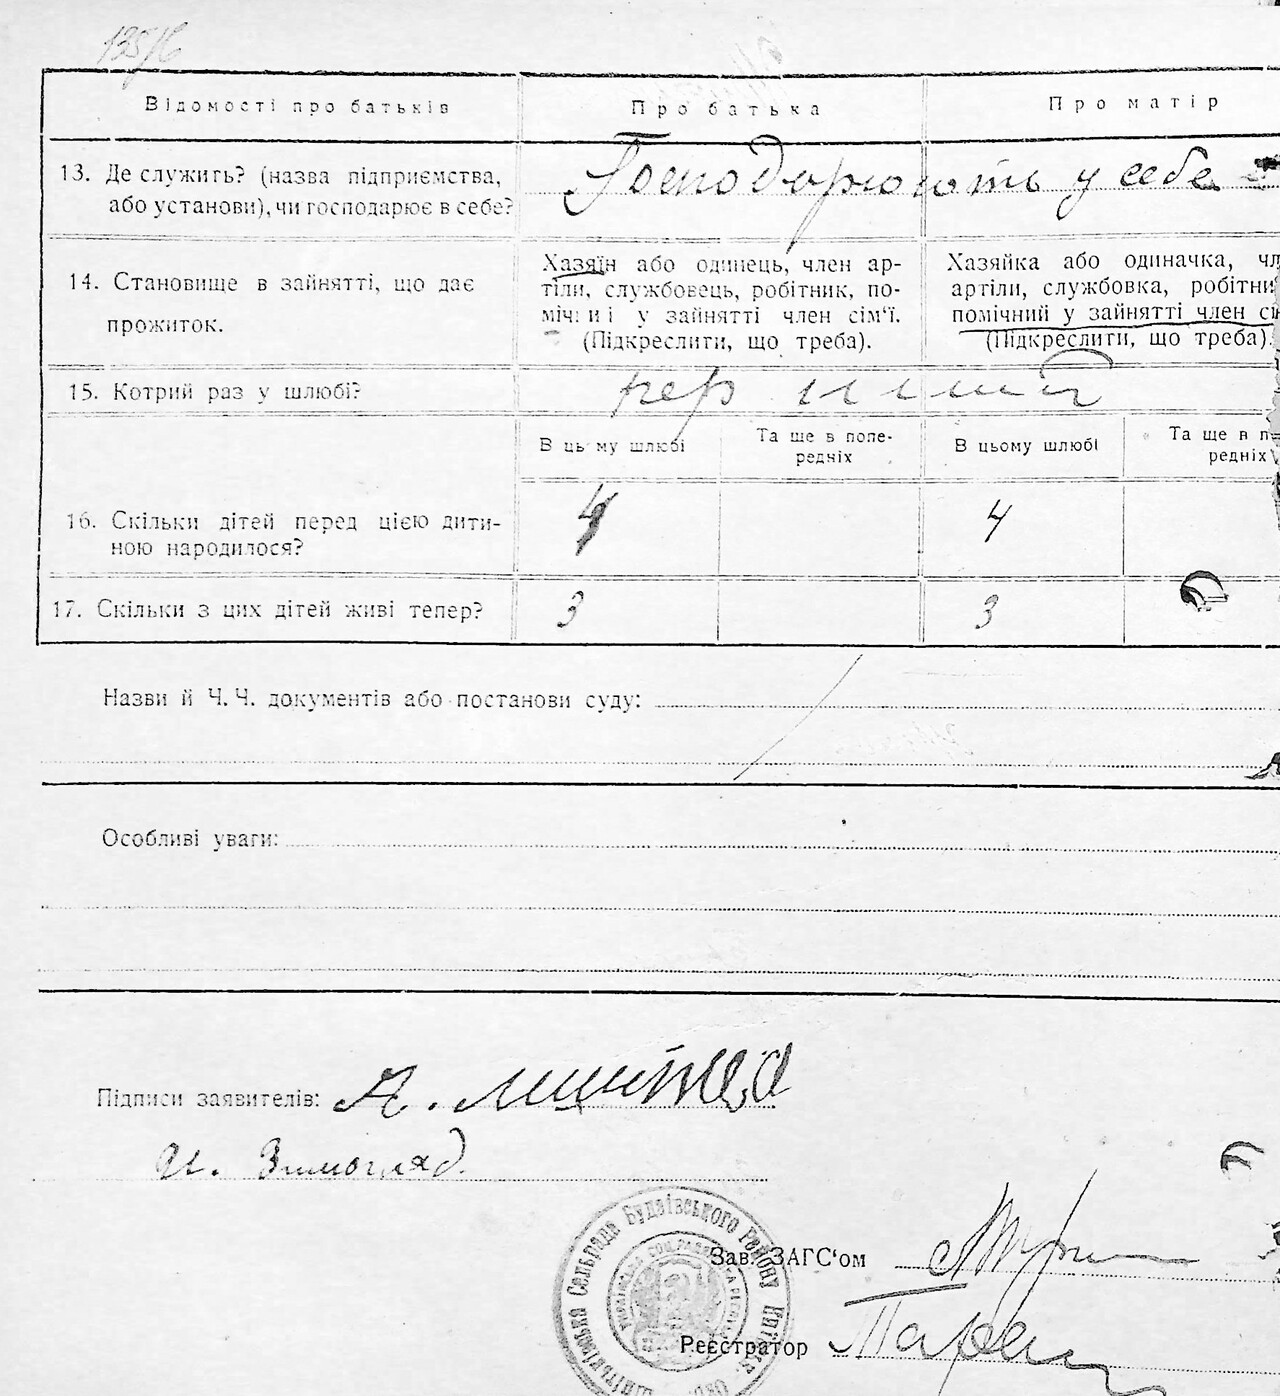 135/6
Відомості про батьків
Про батька
Про матір
13. Де служить? (назва підприємства,
або установи), чи господарює в себе?
Господорюють у себе
14. Становище в зайнятті, що дає
прожиток.
Хазяїн або одинець, член ар-
тіли, службовець, робітник, по-
мічний у зайнятті член сім'ї.
(Підкреслити, що треба).
Хазяйка або одиначка, чл
артіли, службовка, робітни
помічний у зайнятті член сі
(Підкреслити, що треба).
15. Котрий раз у шлюбі?
перший
В цьому шлюбі
Та ще в попе-
редніх
В цьому шлюбі
Та ще в п
редніх
16. Скільки дітей перед цією дити-
ною народилося?
4
4
17. Скільки з цих дітей живі тепер?
3
3
Назви й Ч. Ч. документів або постанови суду:
Особливі уваги:
Підписи заявителів: А.
Зимогляд
Сельрада Будаївського Району Київс
Зав. ЗАГС'ом
Реєстратор